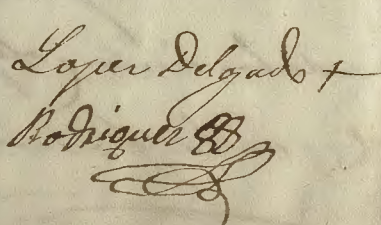 Loper Delgado +
Rodriguer